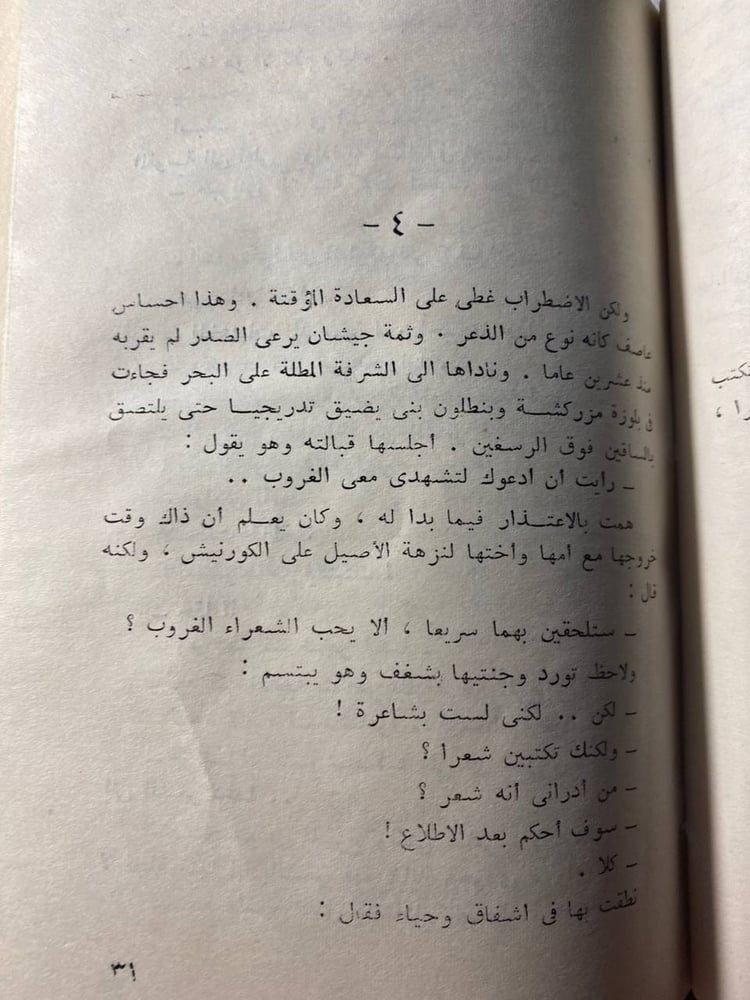 - ٤ -
ولكن الاضطراب غطى على السعادة المؤقتة . وهذا احساس
عاصف كانه نوع من الذعر . وثمة جيشان يرعى الصدر لم يقربه
منذ عشرين عاما . وناداها الى الشرفة المطلة على البحر فجاءت
فى بلوزة مزركشة وبنطلون بنى يضيق تدريجيا حتى يلتصق
بالساقين فوق الرسغين . أجلسها قبالته وهو يقول :
ـ رأيت أن أدعوك لتشهدى معى الغروب ..
همت بالاعتذار فيما بدا له ، وكان يعلم أن ذاك وقت
خروجها مع أمها وأختها لنزهة الأصيل على الكورنيش ، ولكنه
قال :
ـ ستلحقين بهما سريعا ، ألا يحب الشعراء الغروب ؟
ولاحظ تورد وجنتيها بشغف وهو يبتسم :
ـ لكن .. لكنى لست بشاعرة !
ـ ولكنك تكتبين شعرا ؟
ـ من أدرانى أنه شعر ؟
ـ سوف أحكم بعد الاطلاع !
ـ كلا .
نطقت بها فى اشفاق وحياء فقال :
٣١
تكتب